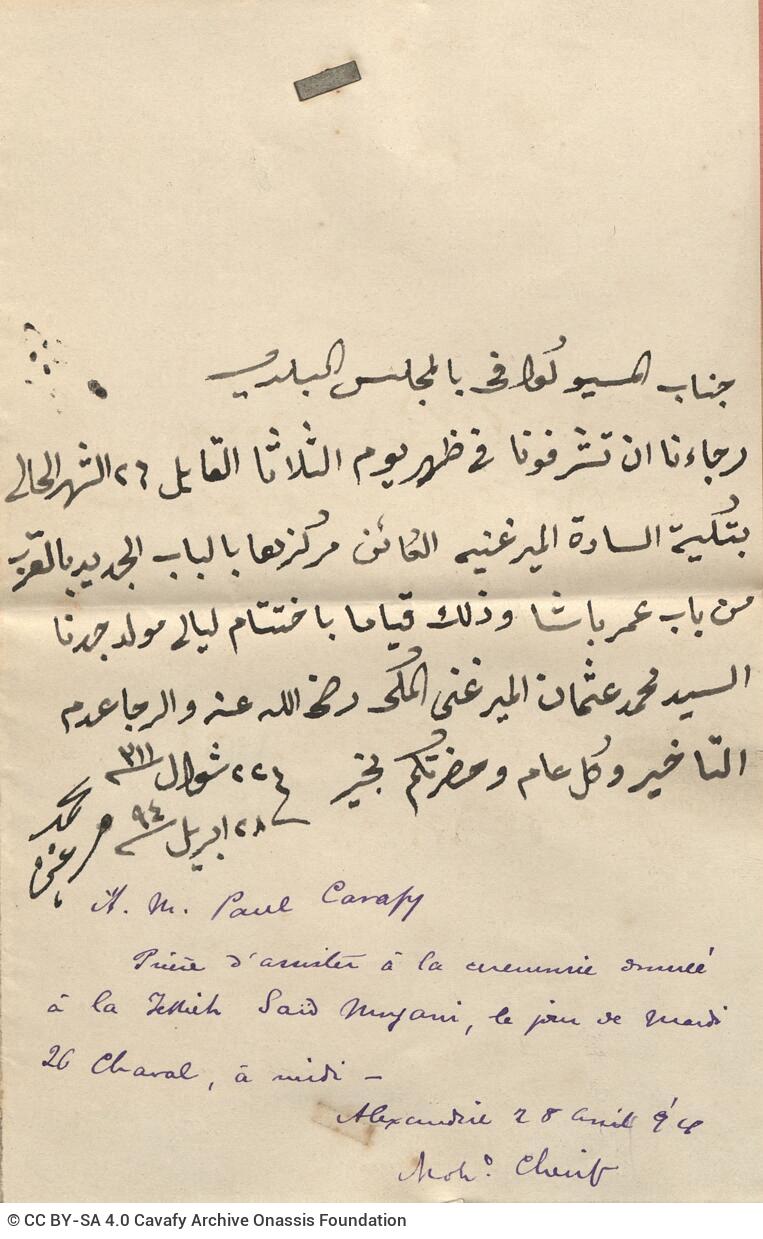 جناب المسيو كوافى بالمجلس البلدى
رجاءنا ان تشرفونا فى ظهر يوم الثلاثا القابل ٢٦ الشهر الحالى
بتكية السادة الميرغنيه الكائن مركزها بالباب الجديد بالقرب
من باب عمر باشا وذلك قياما باختتام ليالى مولد جدنا
السيد محمد عثمان الميرغنى المكى رضى الله عنه والرجا عدم
التاخير وكل عام وحضرتكم بخير
فى ٢٢ شوال ٣١١
٢٨ ابريل ٩٤
محمد
ميرغنى
A. M. Paul Cavafy
Prière d'assister à la ceremonie donnée
à la Tekkieh Said Mirgani, le jour de Mardi
26 Chaval, à midi –
Alexandrie 28 Avril 94
Moh. Cherif
© CC BY-SA 4.0 Cavafy Archive Onassis Foundation